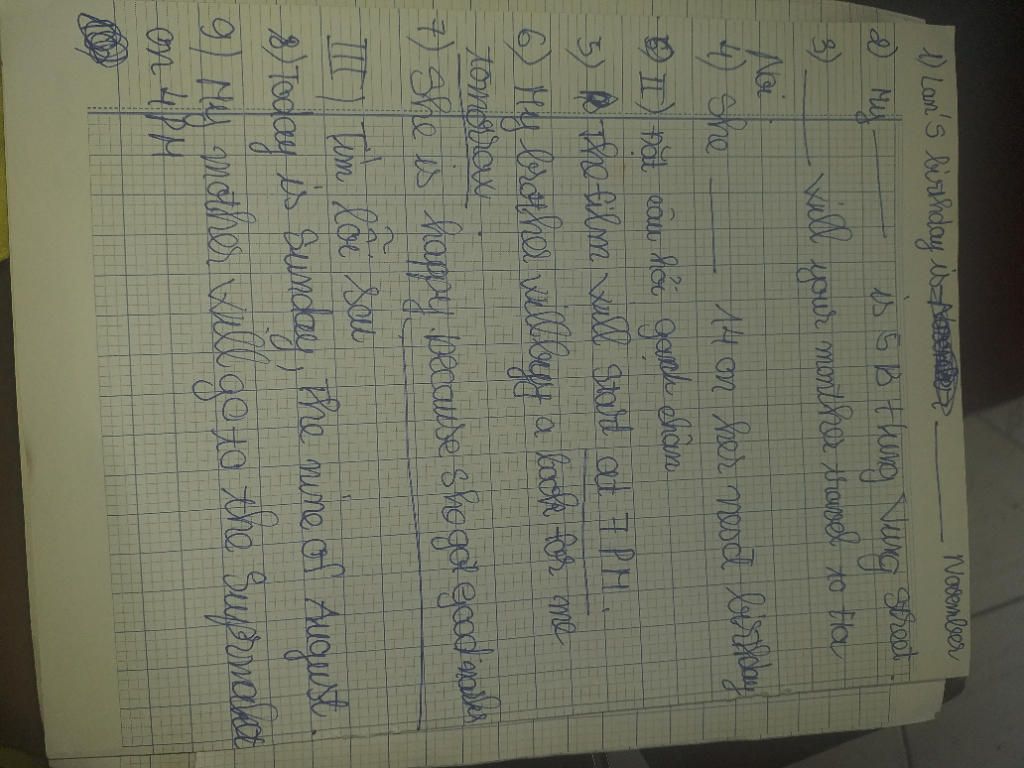 1) Lan's birthday is ______ November
2) My ______ is 5B Hung Vung street
3) ______ will your mother travel to Ha
Noi
4) She ______ 14 on her next birthday
II) Đặt câu hỏi gạch chân
5) The film will start at 7 PM.
6) My brother will buy a book for me
tomorrow
7) She is happy because she got good
III) Tìm lỗi sai
8) Today is Sunday, the nine of August
9) My mother will go to the Supermaket
on 4 PM